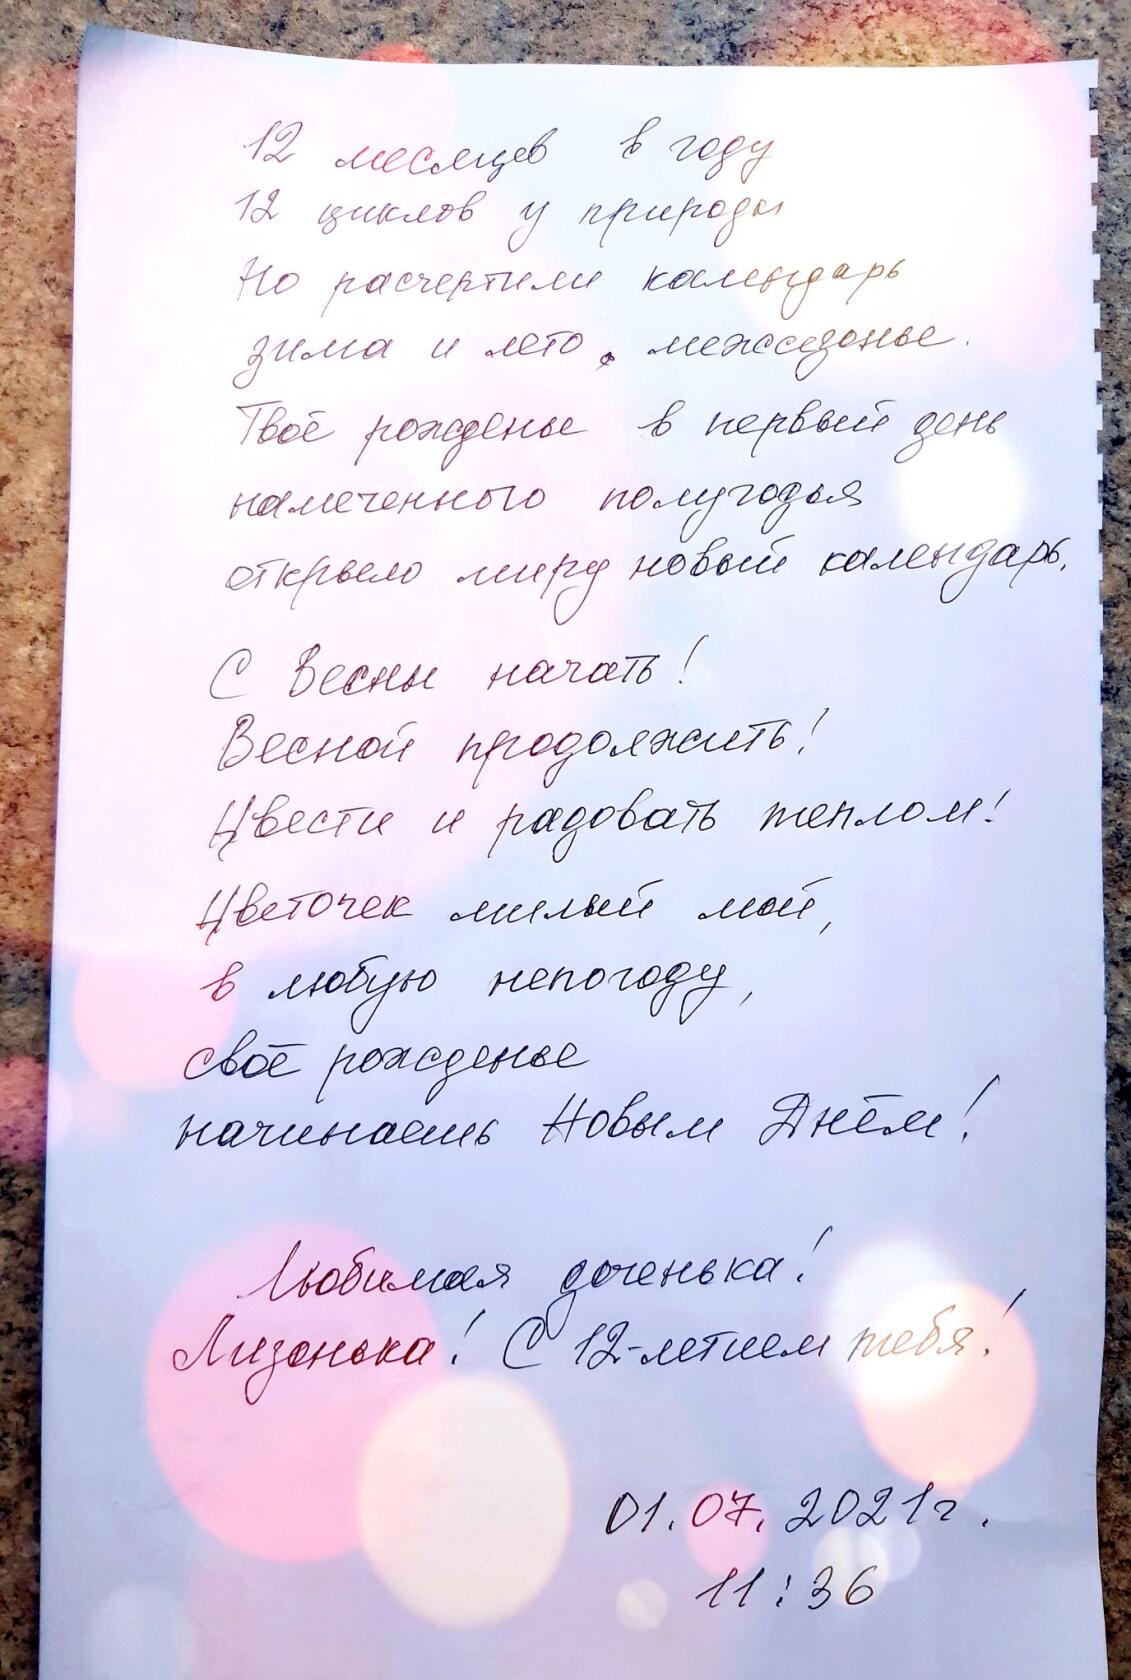 12 месяцев в году
12 циклов у природы
Но расчертили календарь
зима и лето, межсезонье.
Твоё рожденье в первый день
намеченного полугодья
открыло миру новый календарь.
С Весны начать!
Весной продолжить!
Цвести и радовать теплом!
Цветочек милый мой,
в любую непогоду,
своё рожденье
начинаешь Новым Днём!
Любимая доченька!
Лизонька! С 12-летием тебя!
01.07.2021г.
11:36